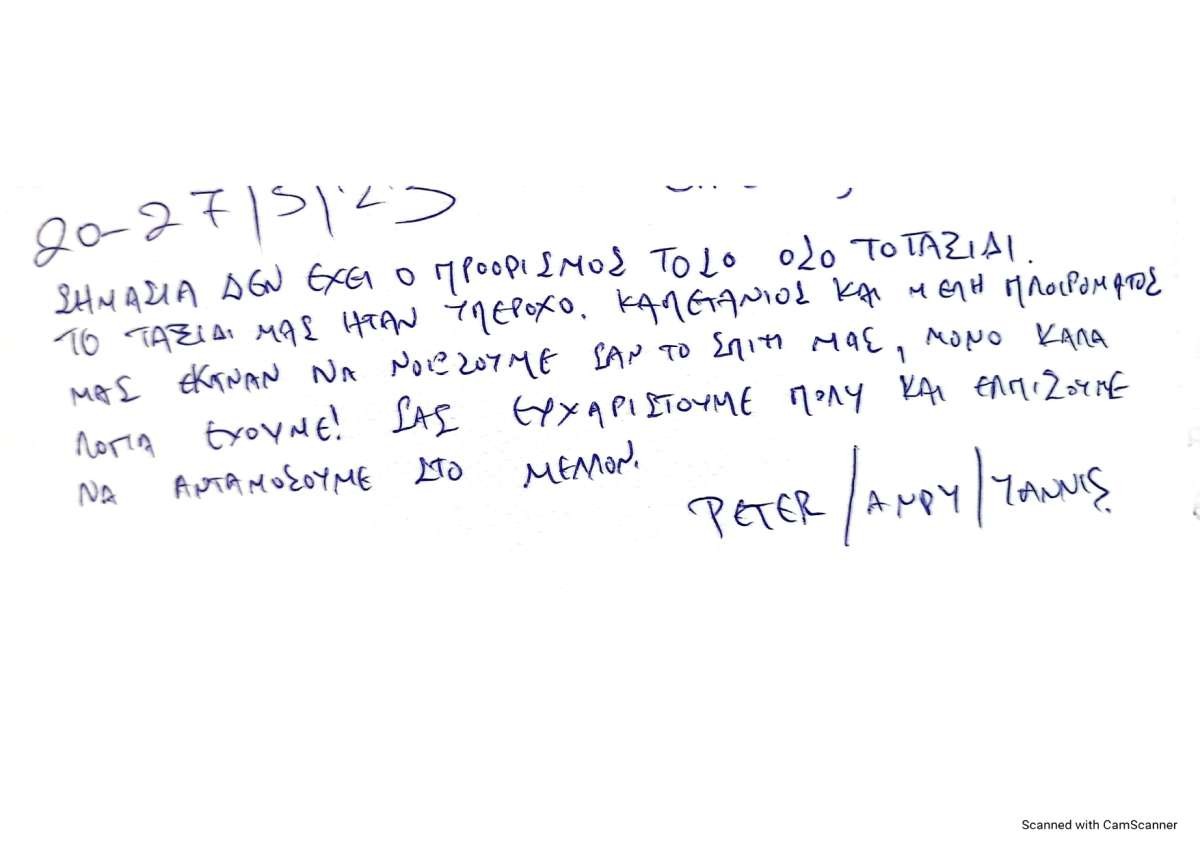 20-27/5/23
ΣΗΜΑΣΙΑ ΔΕΝ ΕΧΕΙ Ο ΠΡΟΟΡΙΣΜΟΣ ΤΟΣΟ ΟΣΟ ΤΟ ΤΑΞΙΔΙ.
ΤΟ ΤΑΞΙΔΙ ΜΑΣ ΗΤΑΝ ΥΠΕΡΟΧΟ. ΚΑΠΕΤΑΝΙΟΣ ΚΑΙ ΜΕΛΗ ΠΛΟΙΡΟΜΑΤΟΣ
ΜΑΣ ΕΚΑΝΑΝ ΝΑ ΝΟΙΣΟΥΜΕ ΣΑΝ ΤΟ ΣΠΙΤΙ ΜΑΣ, ΜΟΝΟ ΚΑΛΑ
ΛΟΓΙΑ ΕΧΟΥΜΕ! ΣΑΣ ΕΥΧΑΡΙΣΤΟΥΜΕ ΠΟΛΥ ΚΑΙ ΕΛΠΙΖΟΥΜΕ
ΝΑ ΑΝΤΑΜΟΣΟΥΜΕ ΣΤΟ ΜΕΛΛΟΝ.
PETER/ANDY/YANNIS
Scanned with CamScanner